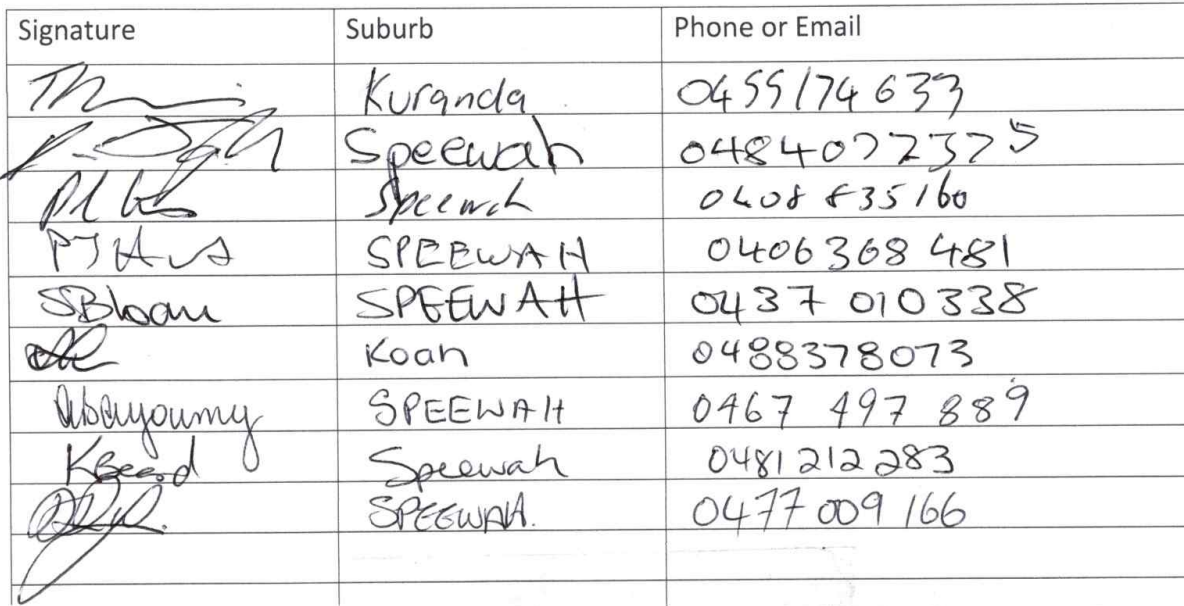 Signature Suburb Phone or Email
Kuranda 0455174633
Speewah 0484072375
Speewah 0408 835160
SPEEWAH 0406368 481
SBloom SPEEWAH 0437 010338
Koah 0488378073
abayoumy SPEEWAH 0467 497 889
KBeard Speewah 0481212283
SPEEWAH. 0477 009 166